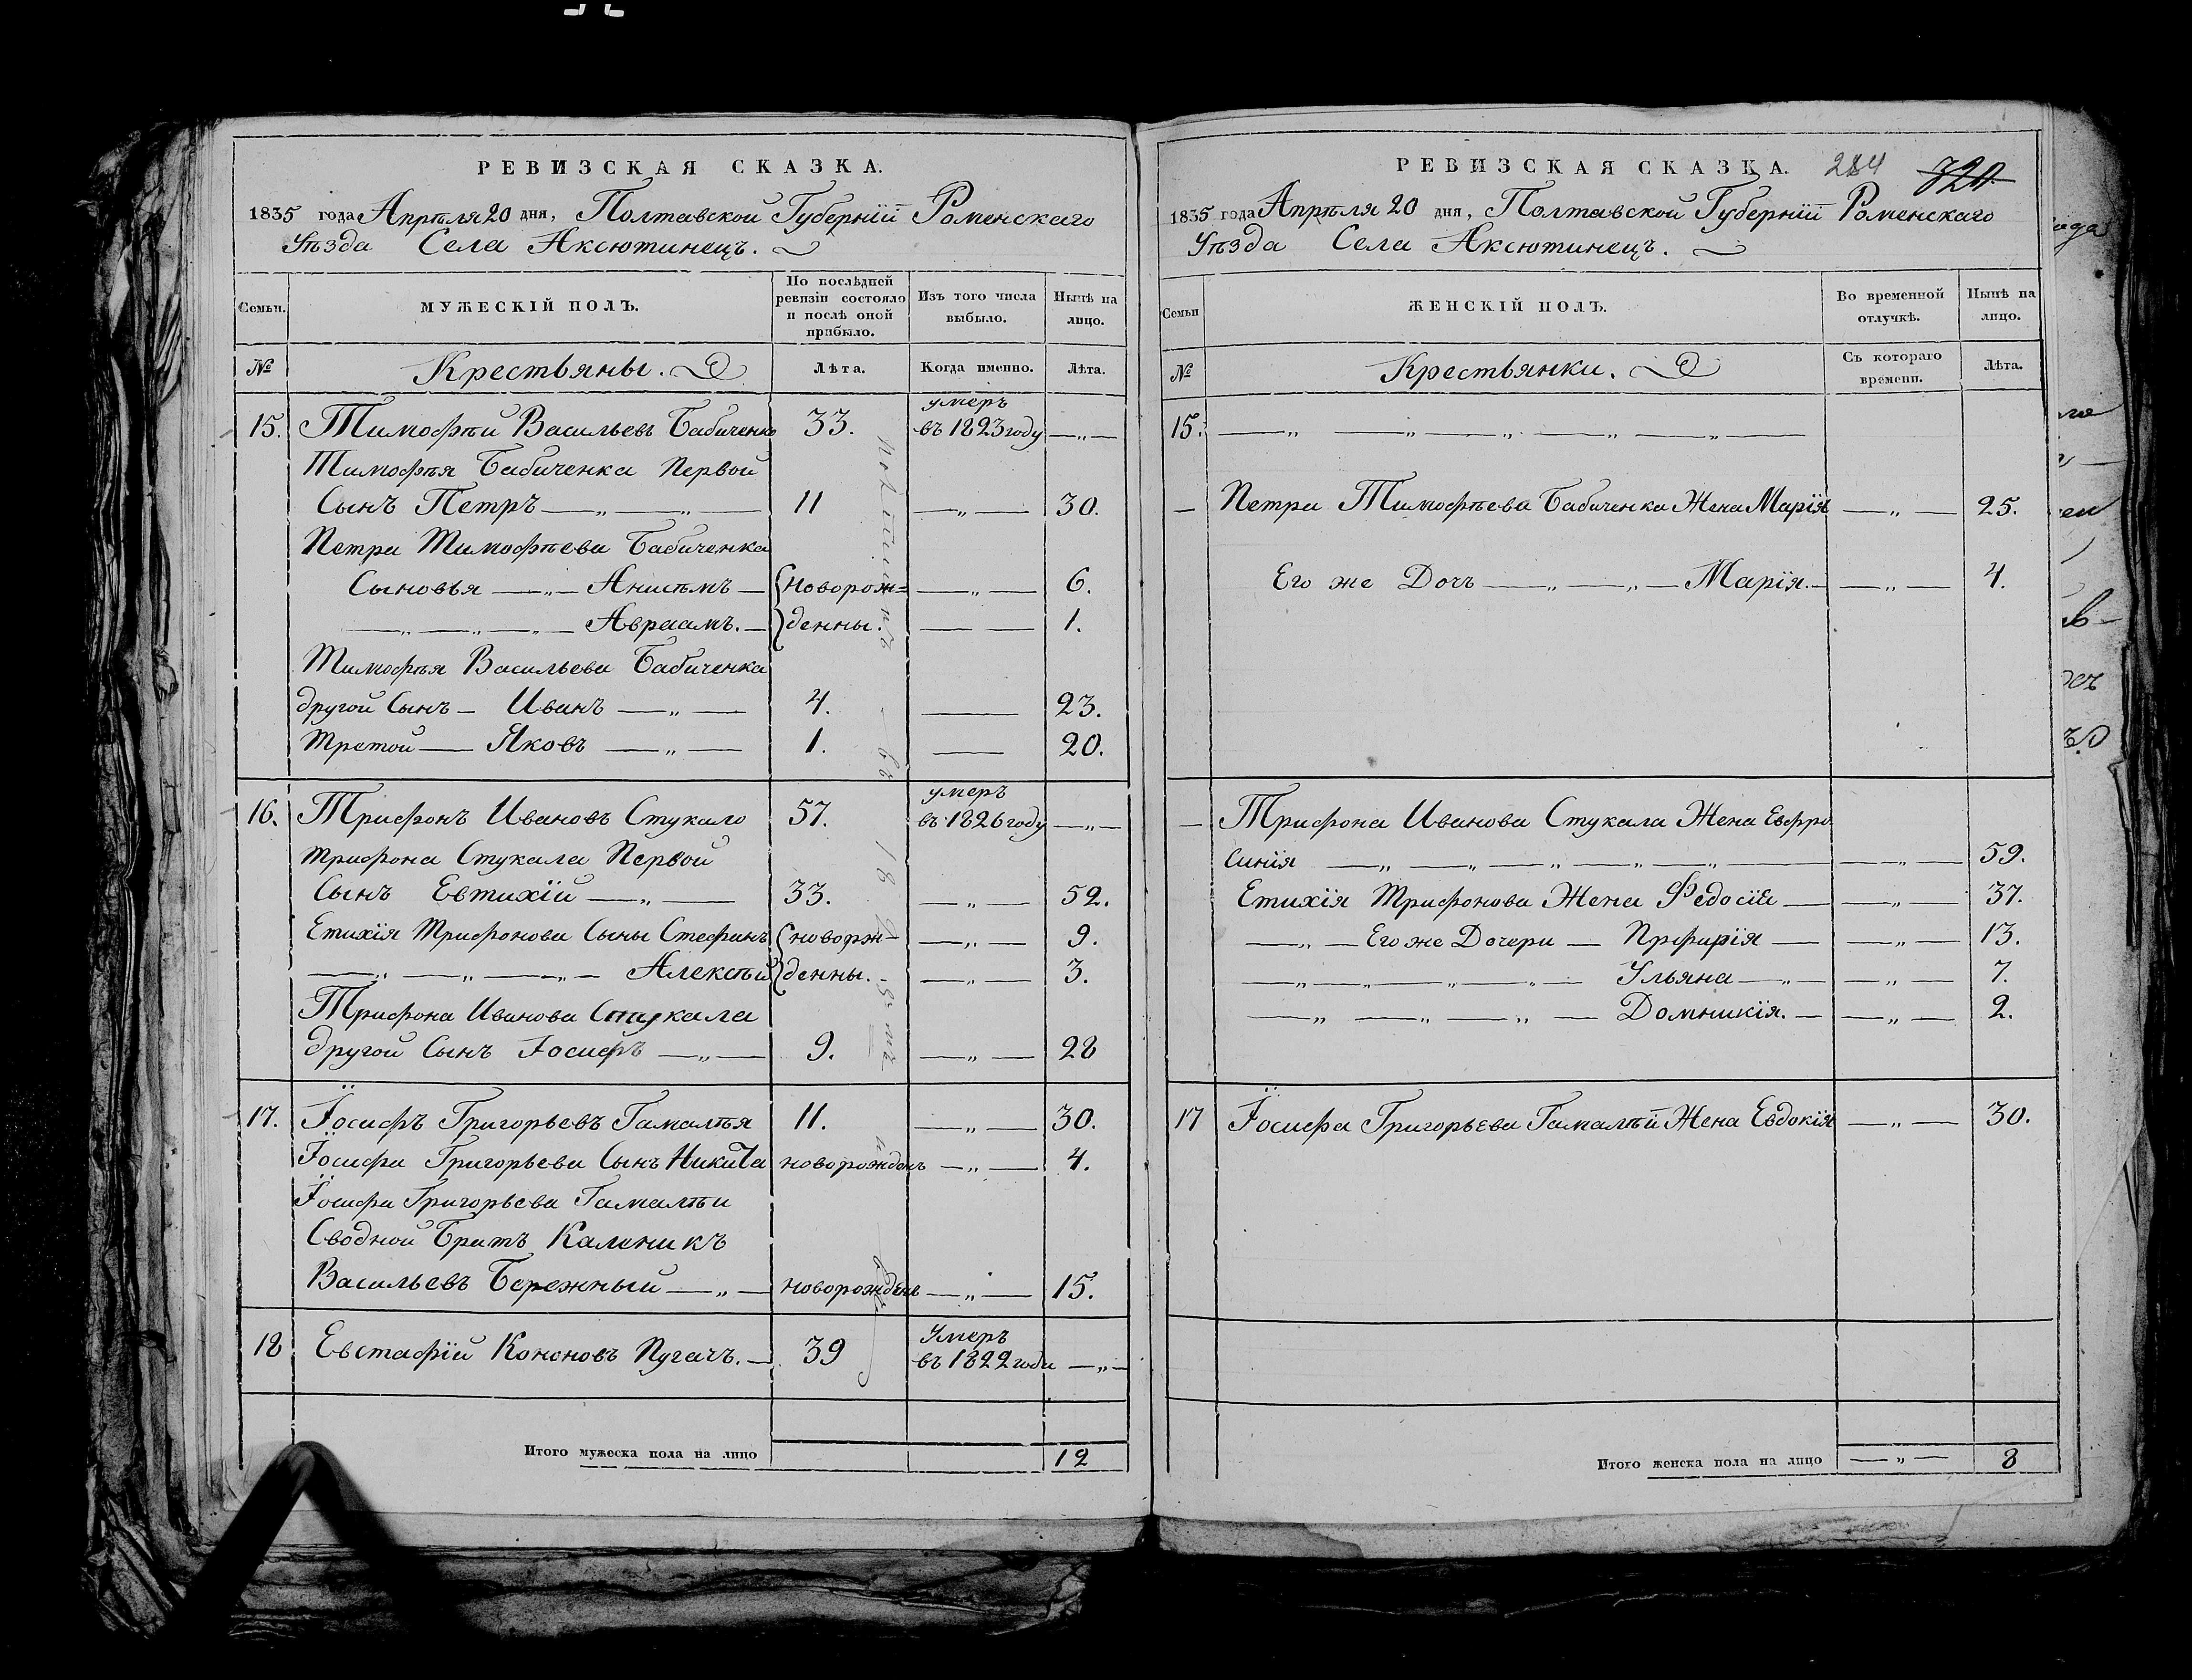 РЕВИЗСКАЯ СКАЗКА.
1835 года Апрѣля 20 дня, Полтавской Губерніи Роменскаго
Уѣзда Села Аксютинецъ.
Семьи.
МУЖЕСКІЙ ПОЛЪ.
По послѣдней ревизіи состояло и послѣ оной прибыло.
Изъ того числа выбыло.
Нынѣ на лицо.
№
Крестьяны.
Лѣта.
Когда именно.
Лѣта.
15. Тимофѣй Васильевъ Бабиченко 33. умеръ въ 1823 году —„—
Тимофѣя Бабиченка Первой
Сынъ Петръ —„— —„— 11 —„— 30.
Петра Тимофѣева Бабиченка
Сыновья —„— Анисѣмъ — новорож= —„— 6.
—„— —„— —„— Авраамъ. — денны. — — 1.
Тимофѣя Васильева Бабиченка
другой Сынъ — Иванъ —„— 4. — 23.
Третой — Яковъ —„— 1. — 20.
16. Трифонъ Ивановъ Стукало 57. умеръ въ 1826 году —„—
Трифона Стукала Первой
Сынъ Евтихій —„— 33. —„— 52.
Етихія Трифонова Сыны Стефанъ новорж= —„— 9.
—„— —„— —„— Алексѣй денны. —„— 3.
Трифона Иванова Стукала
другой Сынъ Іосифъ —„— 9. —„— 28
17. Іосифъ Григорьевъ Гамалѣя 11. —„— 30.
Іосифа Григорьева Сынъ Никита новорожденъ —„— 4.
Іосифа Григорьева Гамалѣи
Сводной Братъ Каленикъ
Васильевъ Бережный —„— новорожденъ —„— 15.
18 Евстафій Кононовъ Пугачъ. — 39 Умеръ въ 1822 годи —„—
Итого мужеска пола на лицо 12
РЕВИЗСКАЯ СКАЗКА. 284 320
1835 года Апрѣля 20 дня, Полтавской Губерніи Роменскаго
Уѣзда Села Аксютинецъ.
Семьи
ЖЕНСКІЙ ПОЛЪ.
Во временной отлучкѣ.
Нынѣ на лицо.
№
Крестьянки.
Съ котораго времени.
Лѣта.
15. —„— —„— —„— —„— —„—
— Петра Тимофѣева Бабиченка Жена Марія —„— 25.
Его же Дочь —„— —„— Марія. — —„— 4.
— Трифона Иванова Стукала Жена Евфро
синія —„— —„— —„— —„— —„— —„— 59.
Етихія Трифонова Жена Федосія — —„— 37.
—„— Его же Дочери — Прфирія — —„— 13.
—„— —„— —„— —„— Ульяна —„— —„— 7.
—„— —„— —„— — Домникія. — —„— 2.
17 Іосифа Григорьева Гамалѣй Жена Евдокія —„— 30.
Итого женска пола на лицо —„— 8